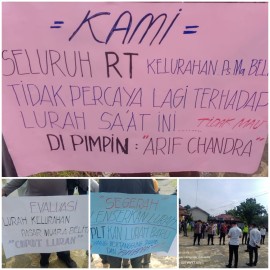 = KAMI =
SELURUH RT KELURAHAN Ps. Ma. BEL
TIDAK PERCAYA LAGI TERHADAP
LURAH SA'AT INI TIDAK MAU
DI PIMPIN : "ARIF CHANDRA"
EVALUASI
LURAH KELURAHAN
PASAR MUARA BELITI
"COPOT LURAH"
"SEGERAH